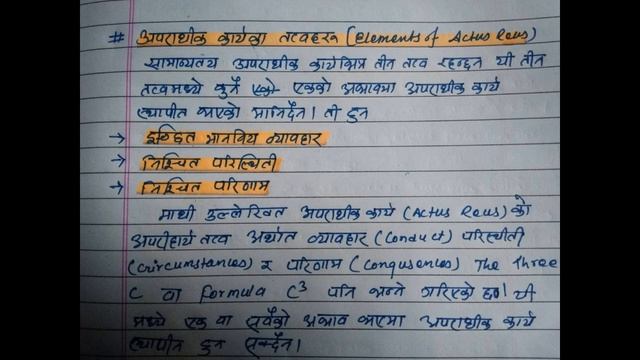 # अपराधीक कार्यका तत्वहरू (Elements of Actus Reus)
सामान्यतय अपराधीक कार्यभित्र तीन तत्व रहन्छन यी तीन
तत्वमध्ये कुनै एको एकको अभावमा अपराधीक कार्य
स्थापीत भएको मानिर्दैन। ती हुन
→ इच्छित मानविय व्यावहार
→ निश्चित परिस्थिती
→ निश्चित परिणाम
माथी उल्लेखित अपराधीक कार्य (Actus Reus) को
अपरीहार्य तत्व अर्थात व्यावहार (Conduct) परिस्थीती
(Circumstances) र परिणाम (Conqusences) The Three
C वा Formula C³ पनि भन्ने गरिएको छ। यी
मध्ये एक वा सवैको अभाव भएमा अपराधीक कार्य
स्थापीत हुन सक्दैन।